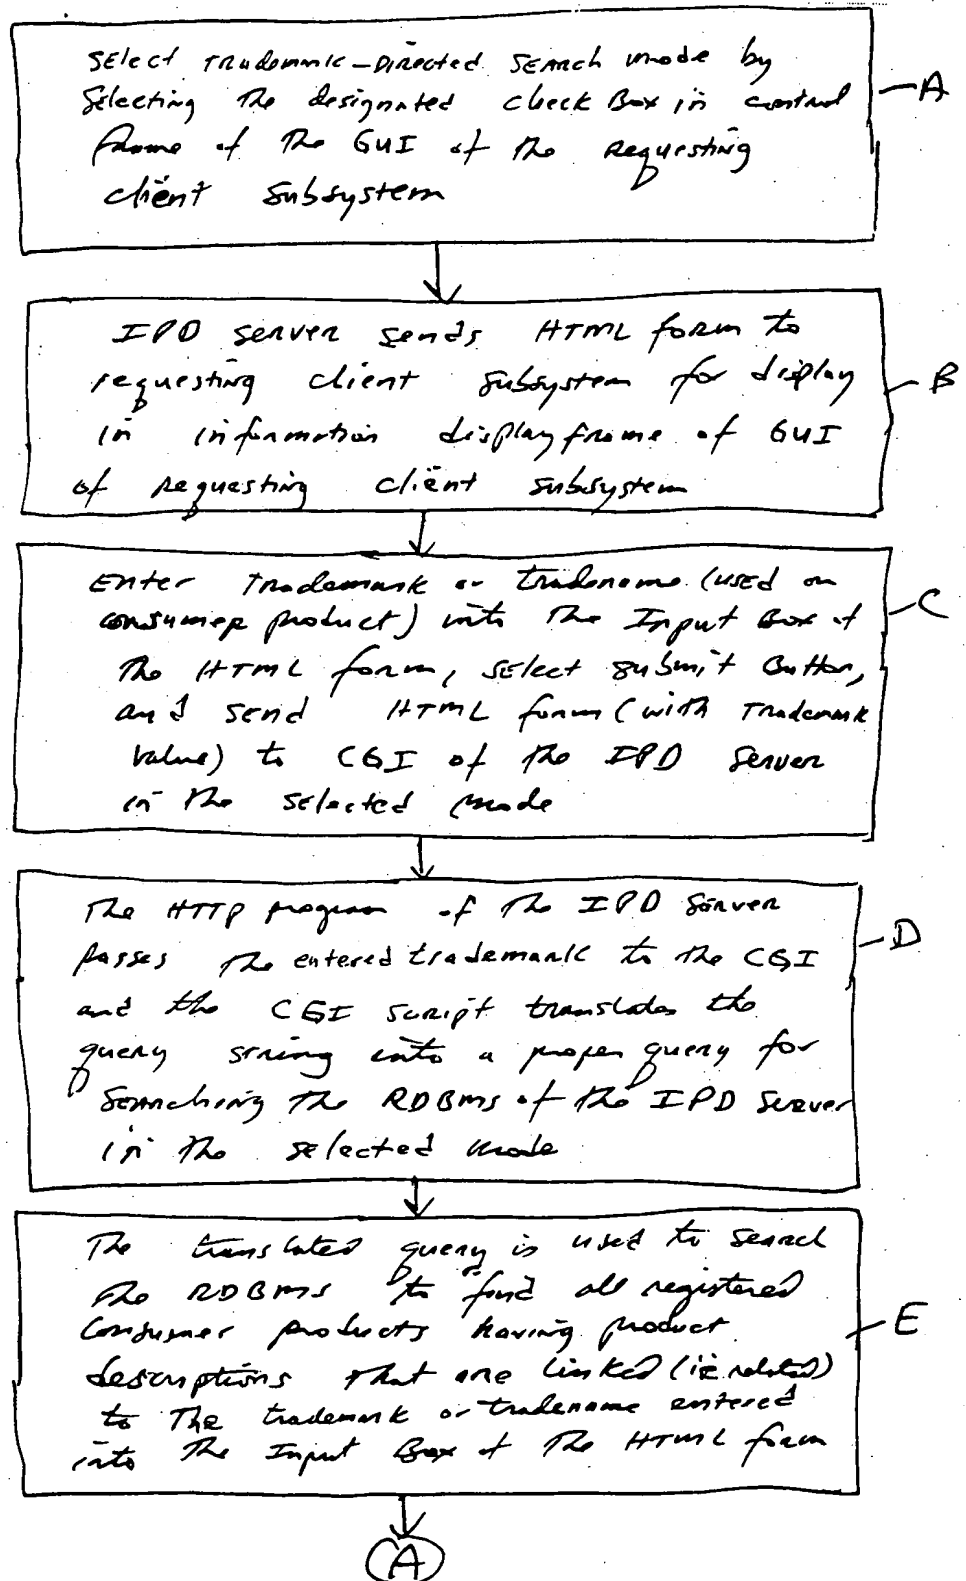 Select Trademark-Directed Search mode by
Selecting the designated check Box in control
frame of the GUI of the requesting
client subsystem
A
IPD server sends HTML form to
requesting client subsystem for display
in information display frame of GUI
of requesting client subsystem
B
Enter Trademark or tradename (used on
consumer product) into the Input Box of
the HTML form, select submit Button,
and send HTML form (with Trademark
value) to CGI of the IPD Server
in the selected mode
C
The HTTP program of the IPD Server
passes the entered trademark to the CGI
and the CGI script translates the
query string into a proper query for
Searching the RDBMS of the IPD Server
in the selected mode
D
The translated query is used to search
the RDBMS to find all registered
Consumer products having product
descriptions that are linked (ie related)
to The trademark or tradename entered
into the Input Box of the HTML form
E
A